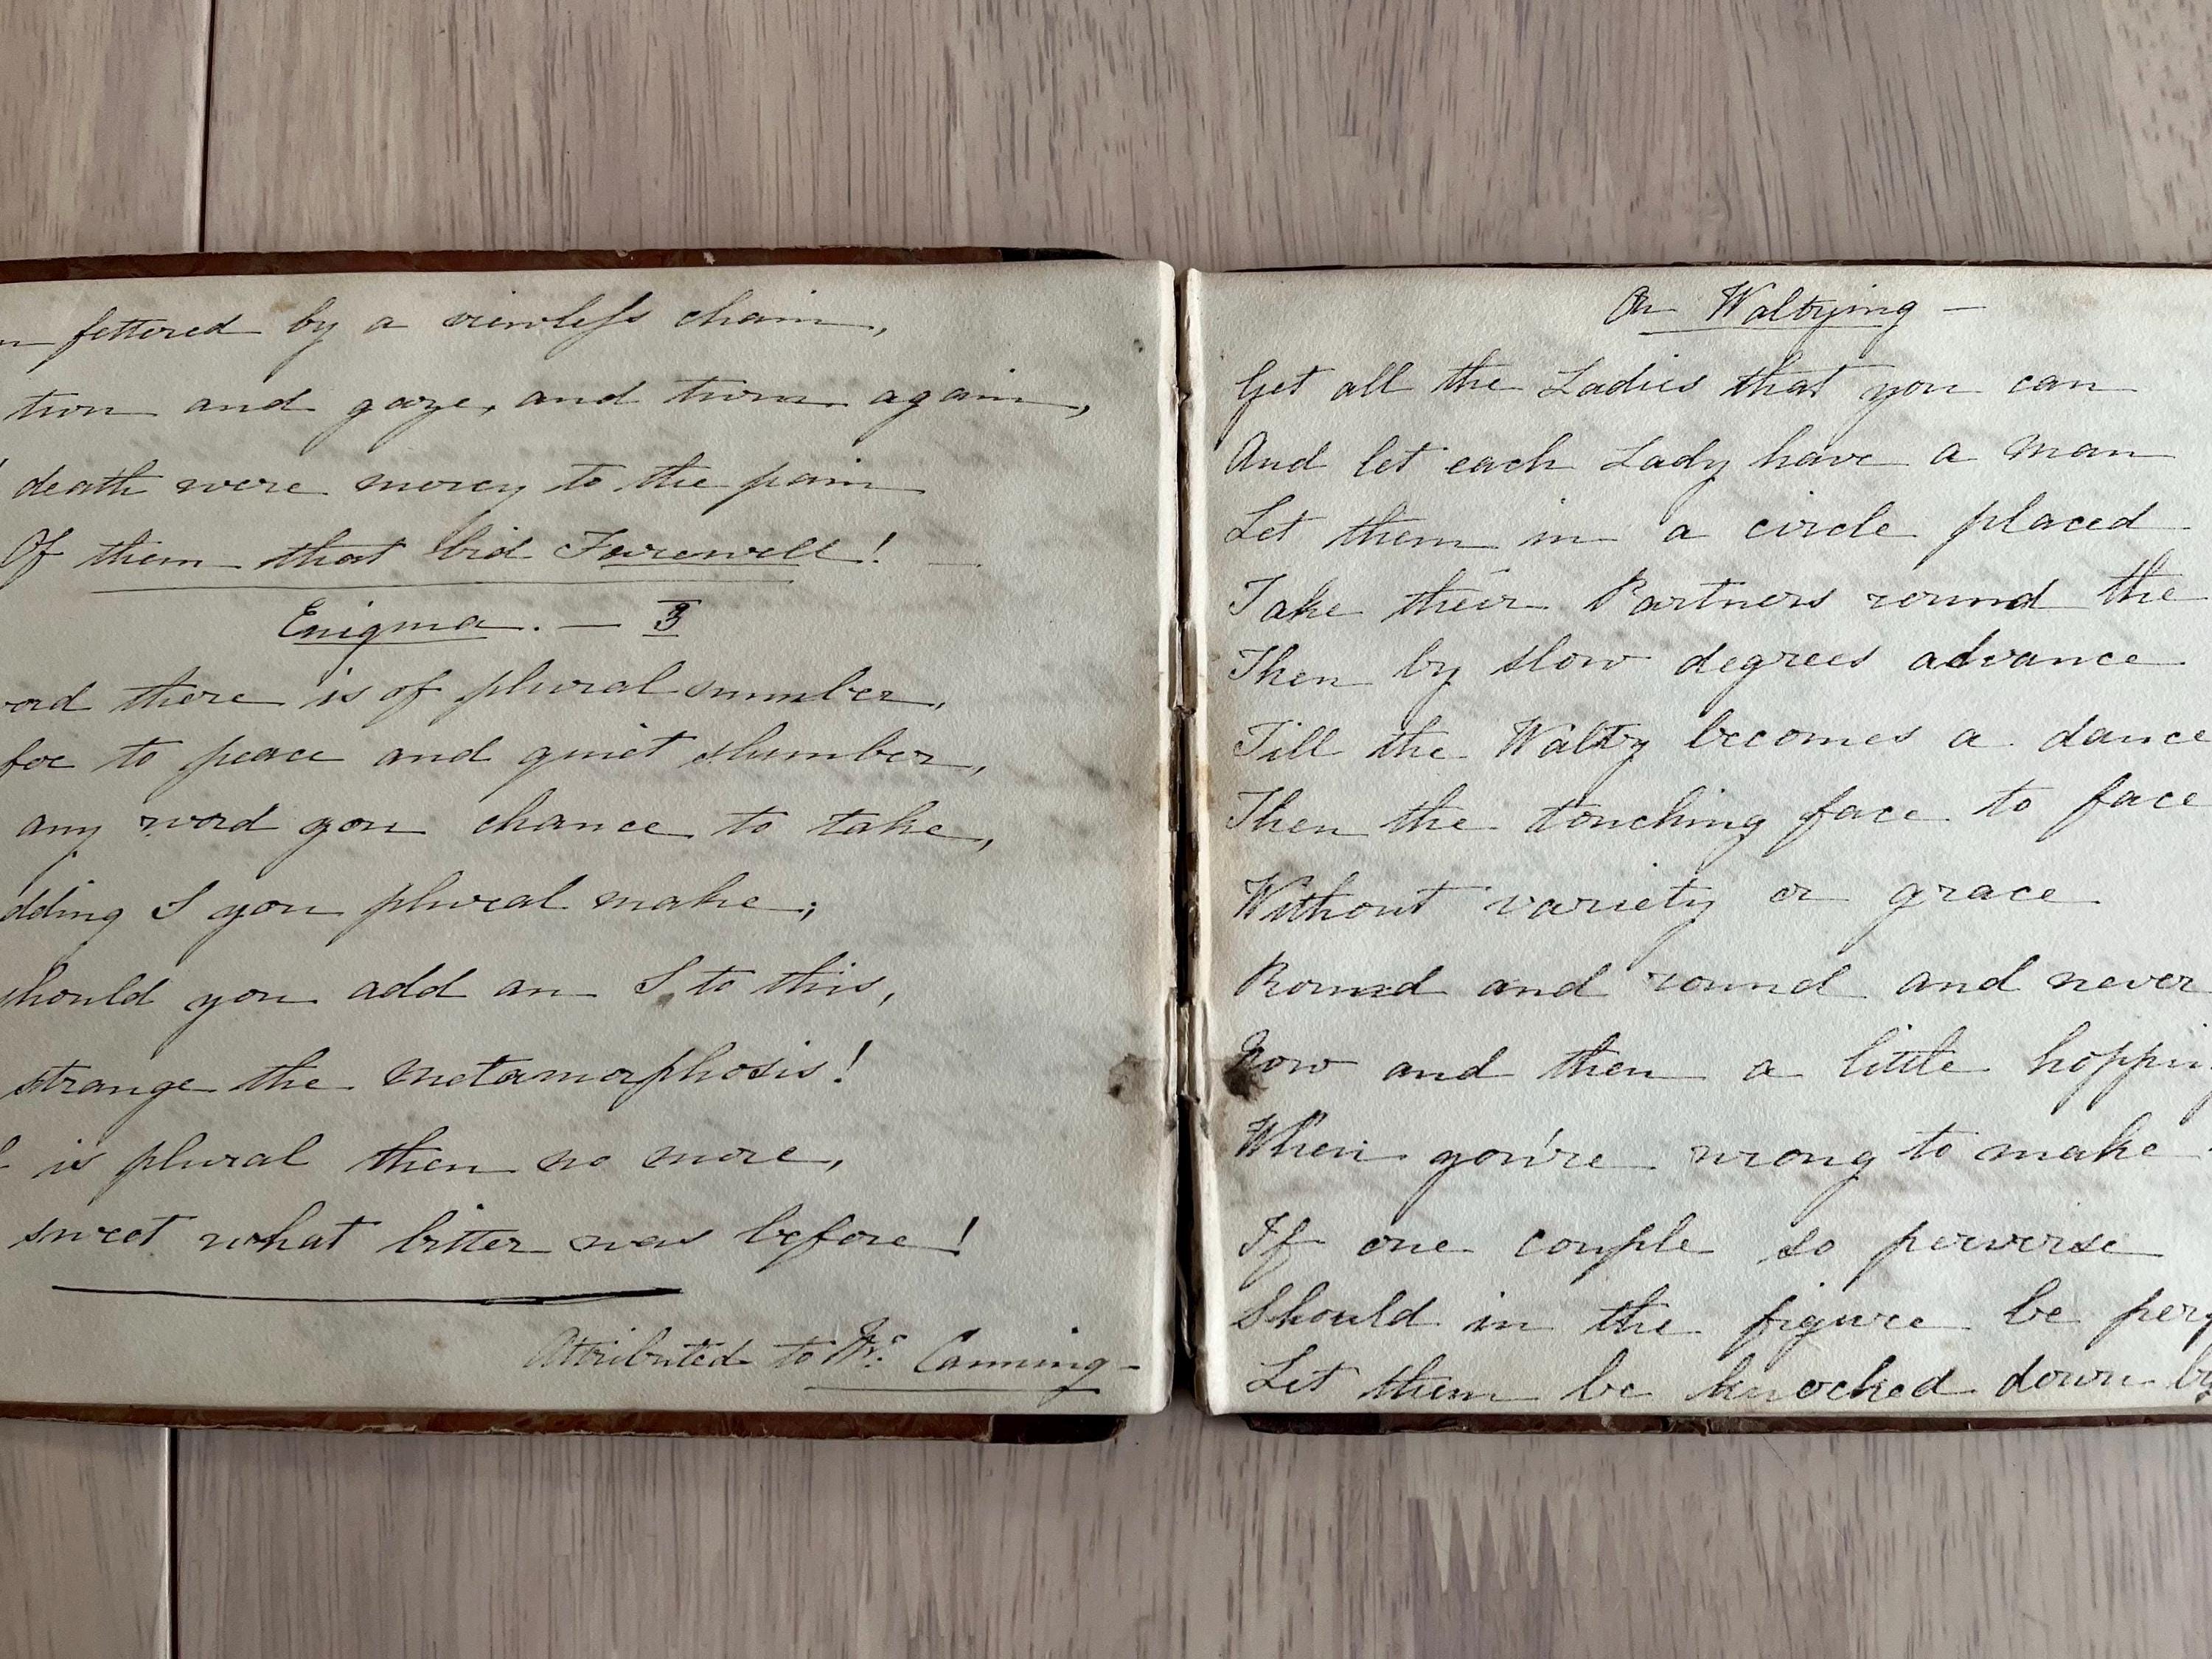 fettered by a viewless chain,
turn and gaze, and turn again,
death were mercy to the pain
Of them that bid Farewell!
Enigma. — 3
there is of plural number,
foe to peace and quiet slumber,
any word you chance to take,
dding S you plural make;
should you add an S to this,
strange the metamorphosis!
is plural then no more,
sweet what bitter was before!
Attributed to Mr. Canning —
On Waltzing —
Get all the Ladies that you can
And let each Lady have a man
Let them in a circle placed
Take their Partners round the
Then by slow degrees advance
Till the Waltz becomes a dance
Then the touching face to face
Without variety or grace
Round and round and never
Now and then a little hoppin
When you're wrong to make
If one couple so perverse
Should in the figure be per
Let them be knocked down by